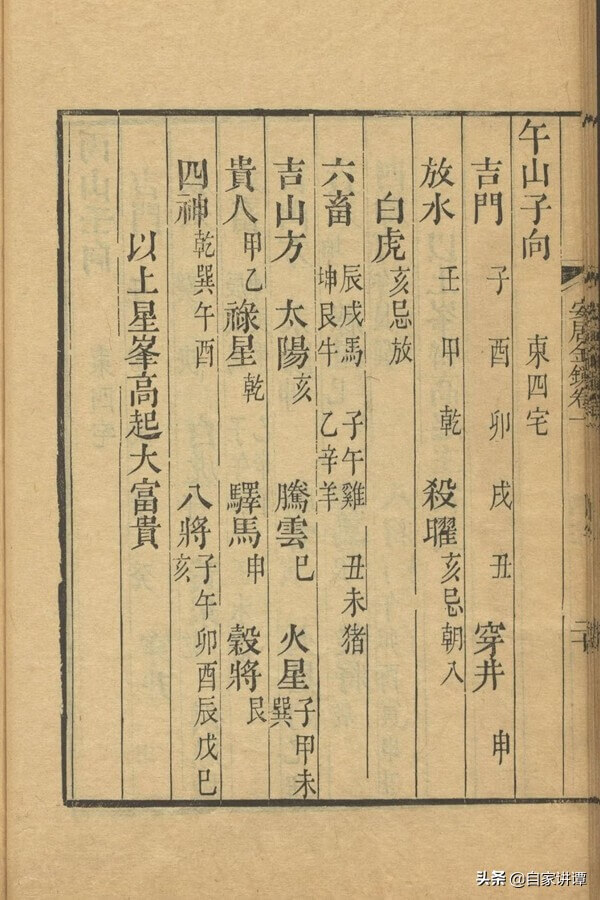 安居金鏡卷一
午山子向 東四宅
吉門 子 酉 卯 戌 丑 穿井 申
放水 壬 甲 乾 殺曜 亥忌朝入
白虎 亥忌放
六畜 辰戌馬 坤艮牛 子午雞 乙辛羊 丑未猪
吉山方 太陽亥 騰雲巳 火星子甲未巽
貴人甲乙 祿星乾 驛馬申 穀將艮
四神乾巽午酉 八將子午卯酉辰戌巳亥
以上星峯高起大富貴
头条 @自家讲谭